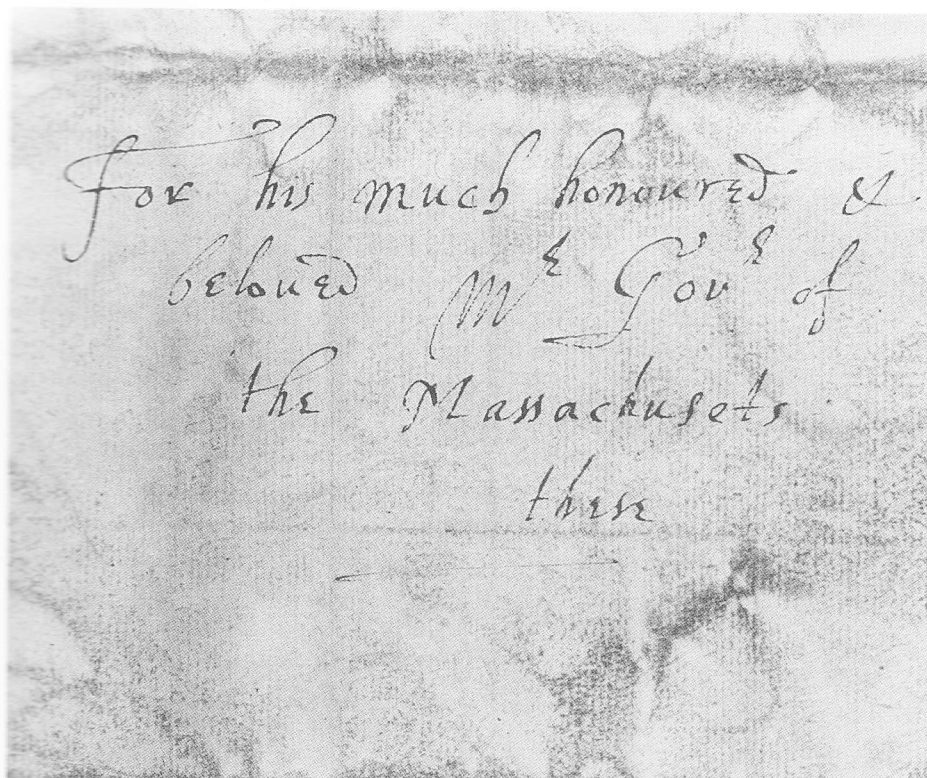 For his much honoured &
beloued Mr Govr of
the Massachusets
these